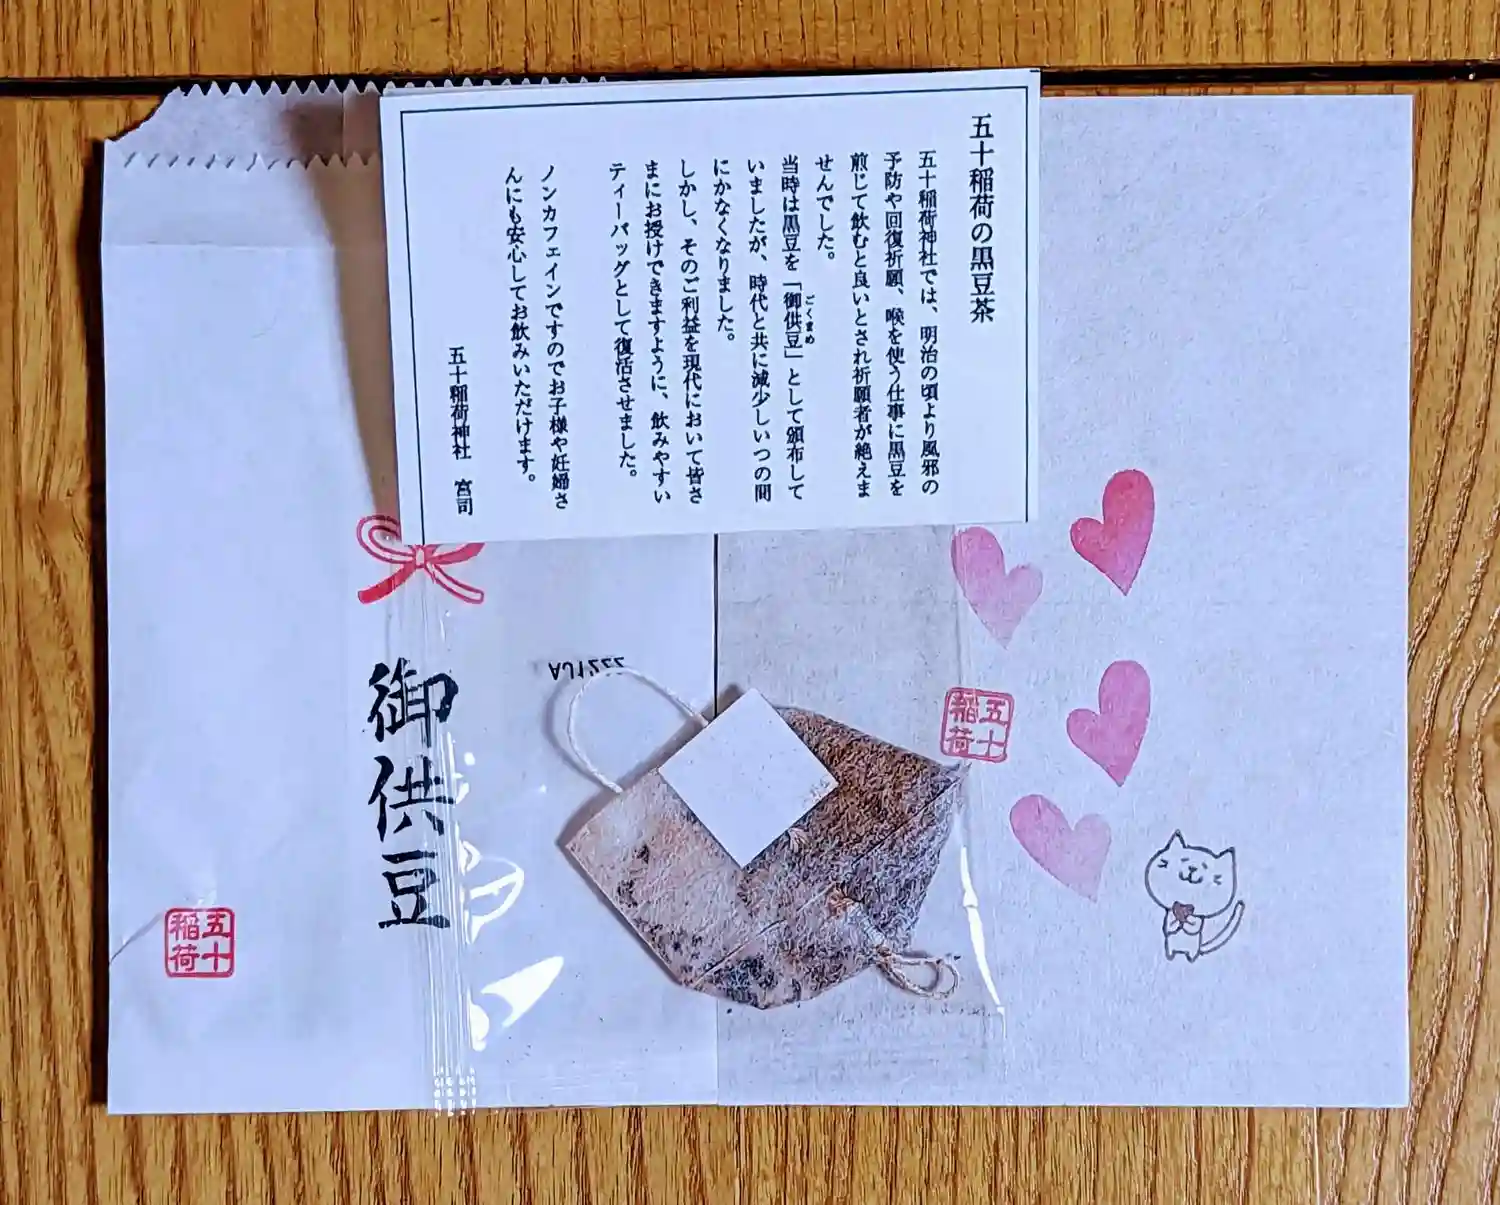 五十稲荷の黒豆茶
五十稲荷神社では、明治の頃より風邪の
予防や回復祈願、喉を使う仕事に黒豆を
煎じて飲むと良いとされ祈願者が絶えま
せんでした。
当時は黒豆を「御供豆」として頒布して
ごくまめ
いましたが、時代と共に減少しいつの間
にかなくなりました。
しかし、そのご利益を現代において皆さ
まにお授けできますように、飲みやすい
ティーバッグとして復活させました。
ノンカフェインですのでお子様や妊婦さ
んにも安心してお飲みいただけます。
五十稲荷神社 宮司
御供豆
五十稲荷
五十稲荷